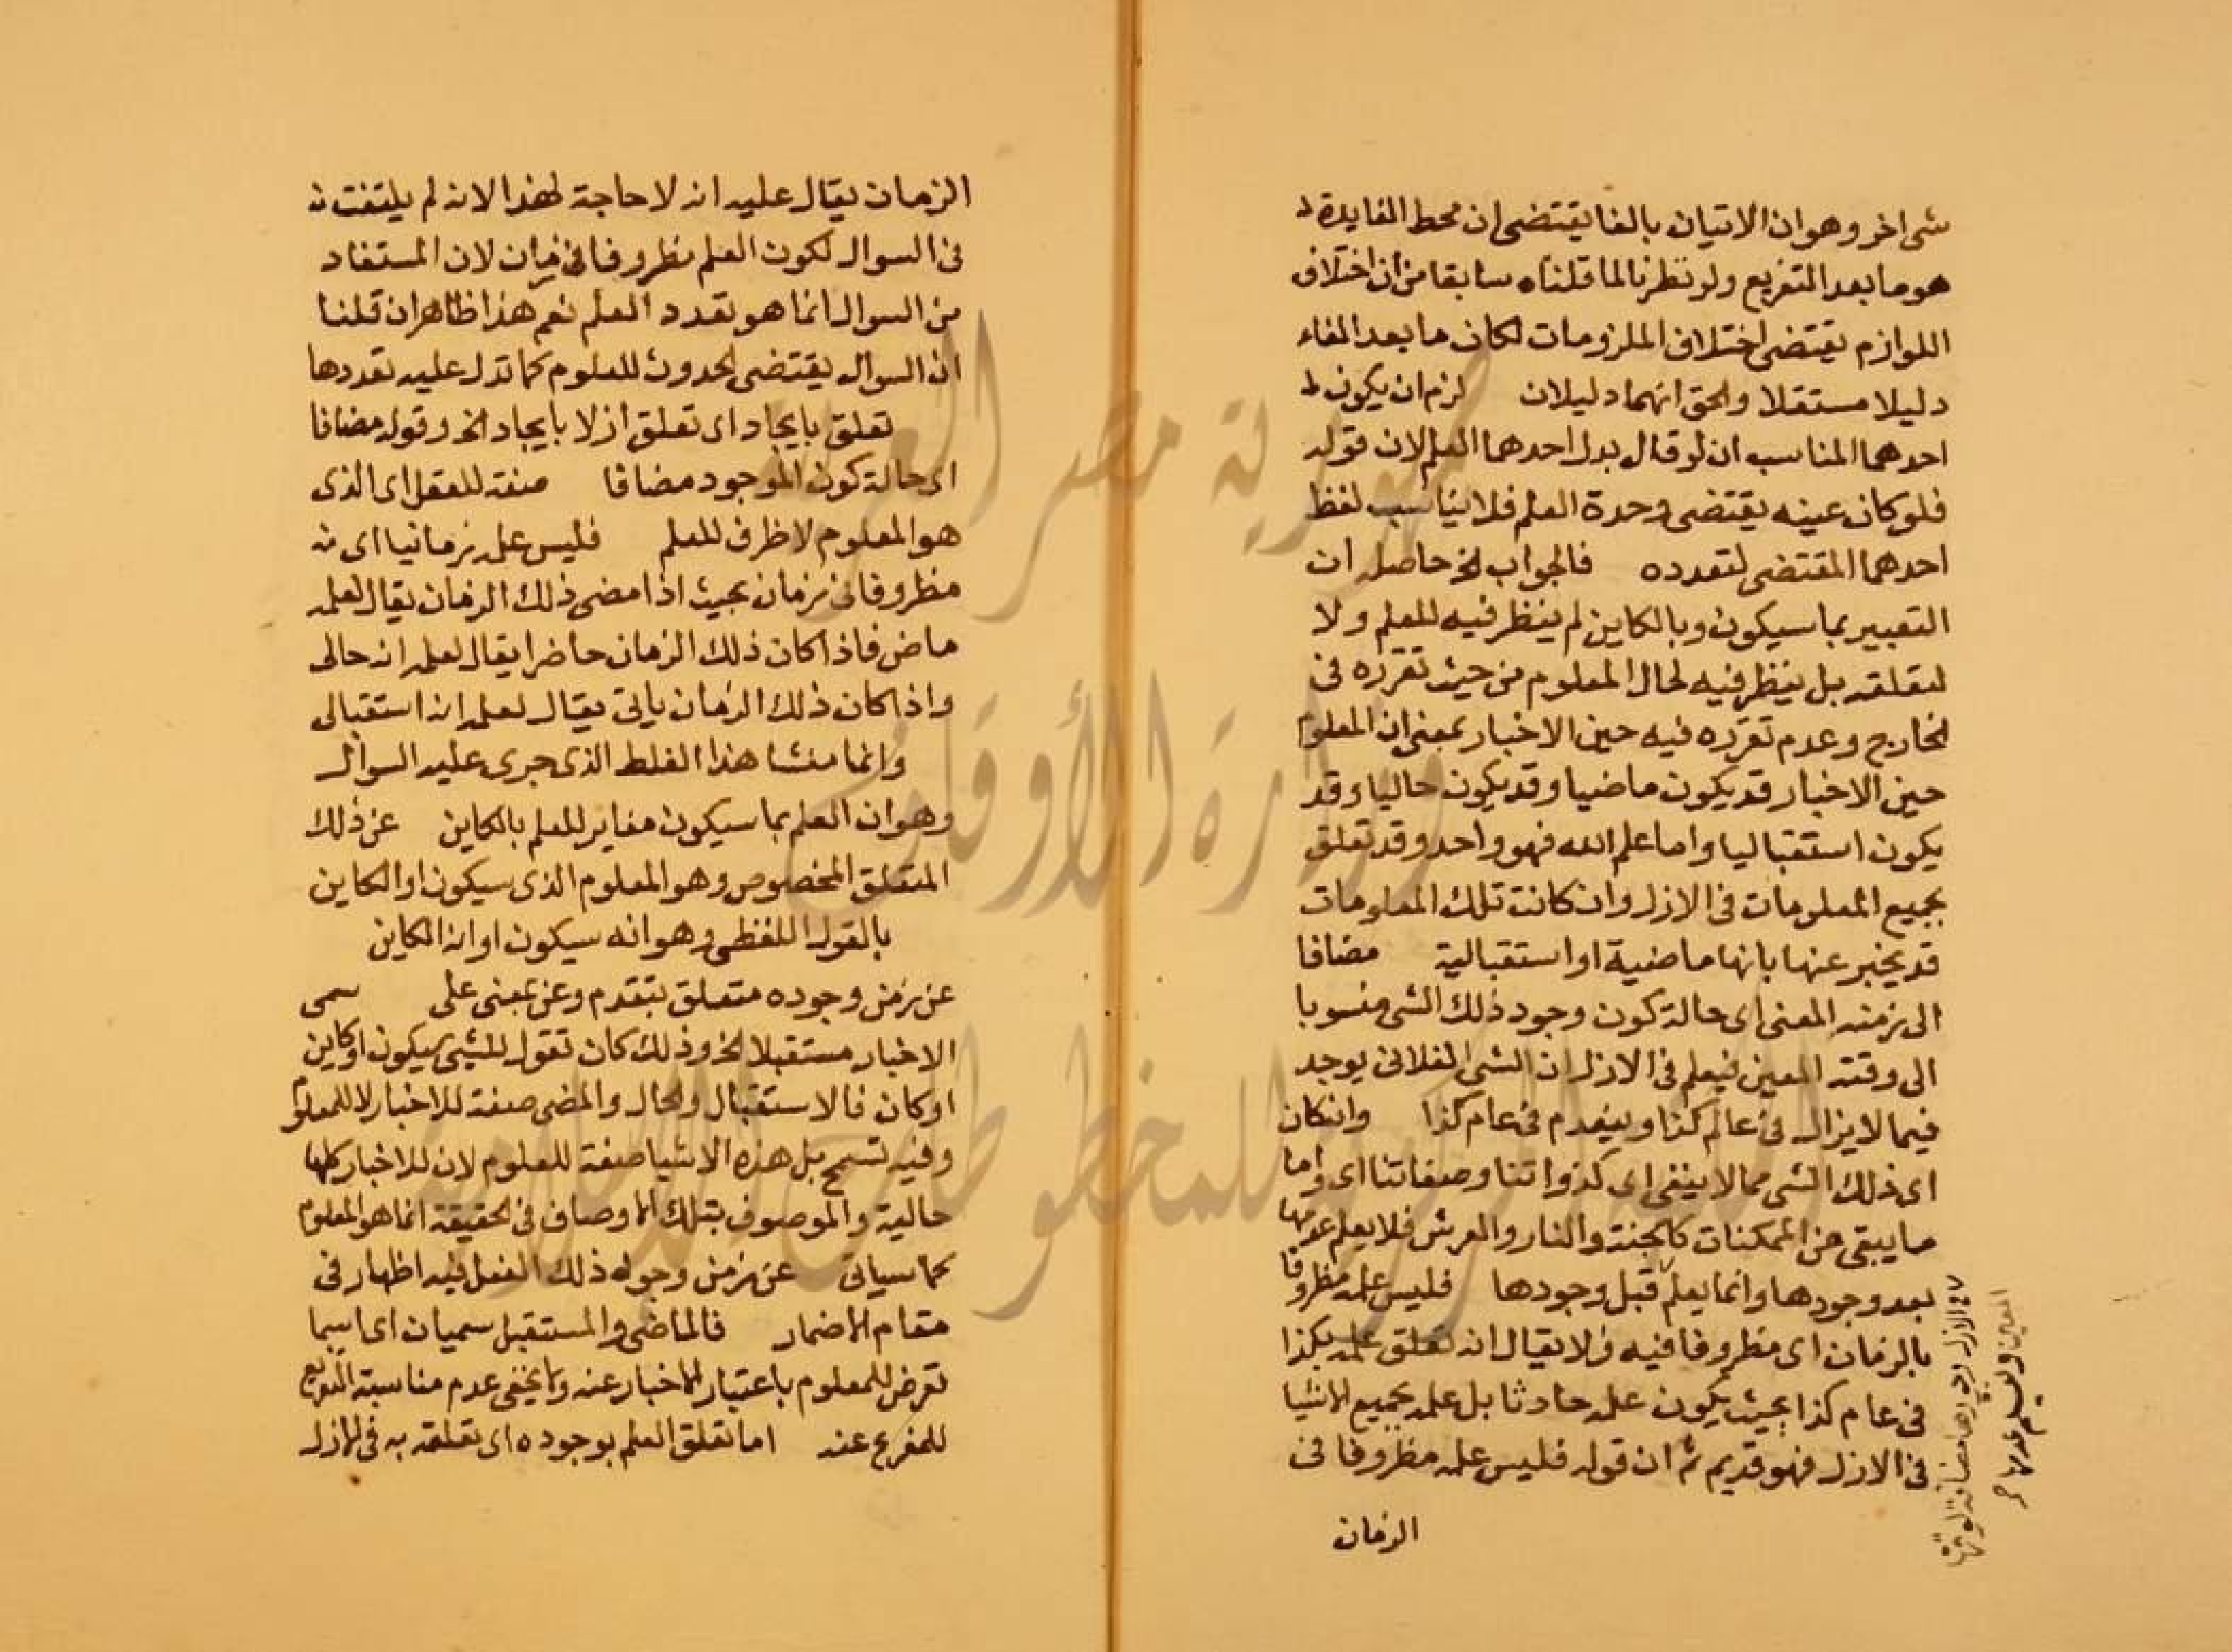 شى اخر وهو ان الاتيان بالفا يقتضى ان محط الفايدة
هو ما بعد التفريع ولو نظرنا لما قلناه سابقا من ان اختلاف
اللوازم يقتضى اختلاف الملزومات لكان ما بعد الفاء
دليلا مستقلا والحق انهما دليلان لزم ان يكون
احدهما المناسب ان لو قال بدل احدهما العلم لان قوله
فلو كان عينه يقتضى وحدة العلم فلا يناسب لفظ
احدهما المقتضى لتعدده فالجواب الخ حاصله ان
التعبير بما سيكون وبالكاين لم ينظر فيه للعلم ولا
لتعلقه بل ينظر فيه لحال المعلوم من حيث تقرره فى
الخارج وعدم تقرره فيه حين الاخبار بمعنى ان المعلوم
حين الاخبار قد يكون ماضيا وقد يكون حاليا وقد
يكون استقباليا واما علم الله فهو واحد وقد تعلق
بجميع المعلومات فى الازل وان كانت تلك المعلومات
قد يخبر عنها بانها ماضية او استقبالية مضافا
الى زمنه المعنى اى حالة كون وجود ذلك الشى منسوبا
الى وقته المعين فيعلم فى الازل ان الشى الفلانى يوجد
فيما لا يزال فى عام كذا وينعدم فى عام كذا وان كان
اى ذلك الشى مما لا ينفى اى كذواتنا وصفاتنا اى واما
ما يبقى من الممكنات كالجنة والنار والعرش فلا يعلم عدمها
بعد وجودها وانما يعلم قبل وجودها فليس علمه مظروفا
بالزمان اى مظروفا فيه ولا يقال انه تعلق علمه بكذا
فى عام كذا بحيث يكون علمه حادثا بل علمه بجميع الاشيا
فى الازل فهو قديم ثم ان قوله فليس علمه مظروفا فى
الزمان
الزمان يقال عليه انه لا حاجة لهذا لانه لم يلتفت
فى السوال لكون العلم مظروفا فى زمان لان المستفاد
من السوال انما هو تعدد العلم نعم هذا ظاهر ان قلنا
ان السوال يقتضى لحدوث للعلوم كما تدل عليه تعددها
تعلق بايجاد اى تعلق ازلا بايجاد الخ وقوله مضافا
اى حالة كون الموجود مضافا صفة للعقل اى الذى
هو المعلوم لا ظرف للعلم فليس علمه زمانيا اى
مظروفا فى زمان بحيث اذا مضى ذلك الزمان يقال لعلمه
ماض فاذا كان ذلك الزمان حاضرا يقال لعلمه انه حالى
واذا كان ذلك الزمان ياتى يقال لعلمه انه استقبالى
وانما منشا هذا الغلط الذى جرى عليه السوال
وهو ان العلم بما سيكون مغاير للعلم بالكاين عن ذلك
المتعلق المخصوص وهو المعلوم الذى سيكون او الكاين
بالقول اللفظى وهو انه سيكون او انه الكاين
عن زمن وجوده متعلق بتقدم وعن بمعنى على سمى
الاخبار مستقبلا الخ وذلك كان تقول للشى سيكون او كاين
او كان فالاستقبال والحال والمضى صفة للاخبار لا للمعلوم
وفيه تسمح بل هذه الاشيا صفة للعلوم لان للاخبار كلها
حالية والموصوف بتلك الاوصاف فى الحقيقة انما هو المعلوم
كما سياتى عن زمن وجوله ذلك الفعل فيه اظهار فى
مقام الاضمار فالماضى والمستقبل سميان اى اسما
تعرض للمعلوم باعتبار الاخبار عنه ولا يخفى عدم مناسبة التفريع
للمفرع عنه اما تعلق العلم بوجوده اى تعلقه به فى الازل